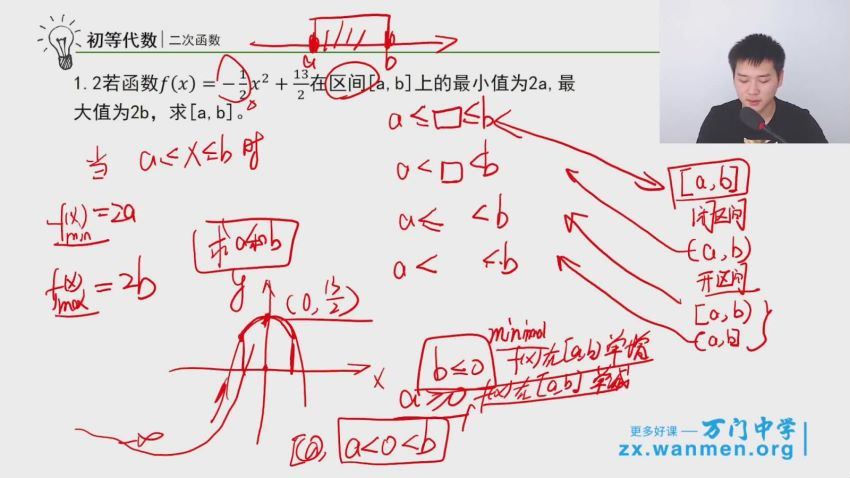 初等代数 | 二次函数
a b
1.2若函数f(x)=-1/2x²+13/2在区间[a,b]上的最小值为2a,最
大值为2b，求[a,b]。
当 a≤x≤b时
f(x)min=2a
f(x)max=2b
求a和b
a≤□≤b
a<□<b
a≤ <b
a< ≤b
[a,b]
闭区间
(a,b)
开区间
[a,b)
(a,b]
y
(0,13/2)
x
-∞
minimal
b≤0 f(x)在[a,b]单增
a≥0 f(x)在[a,b]单减
a<0<b
更多好课 — 万门中学
zx.wanmen.org